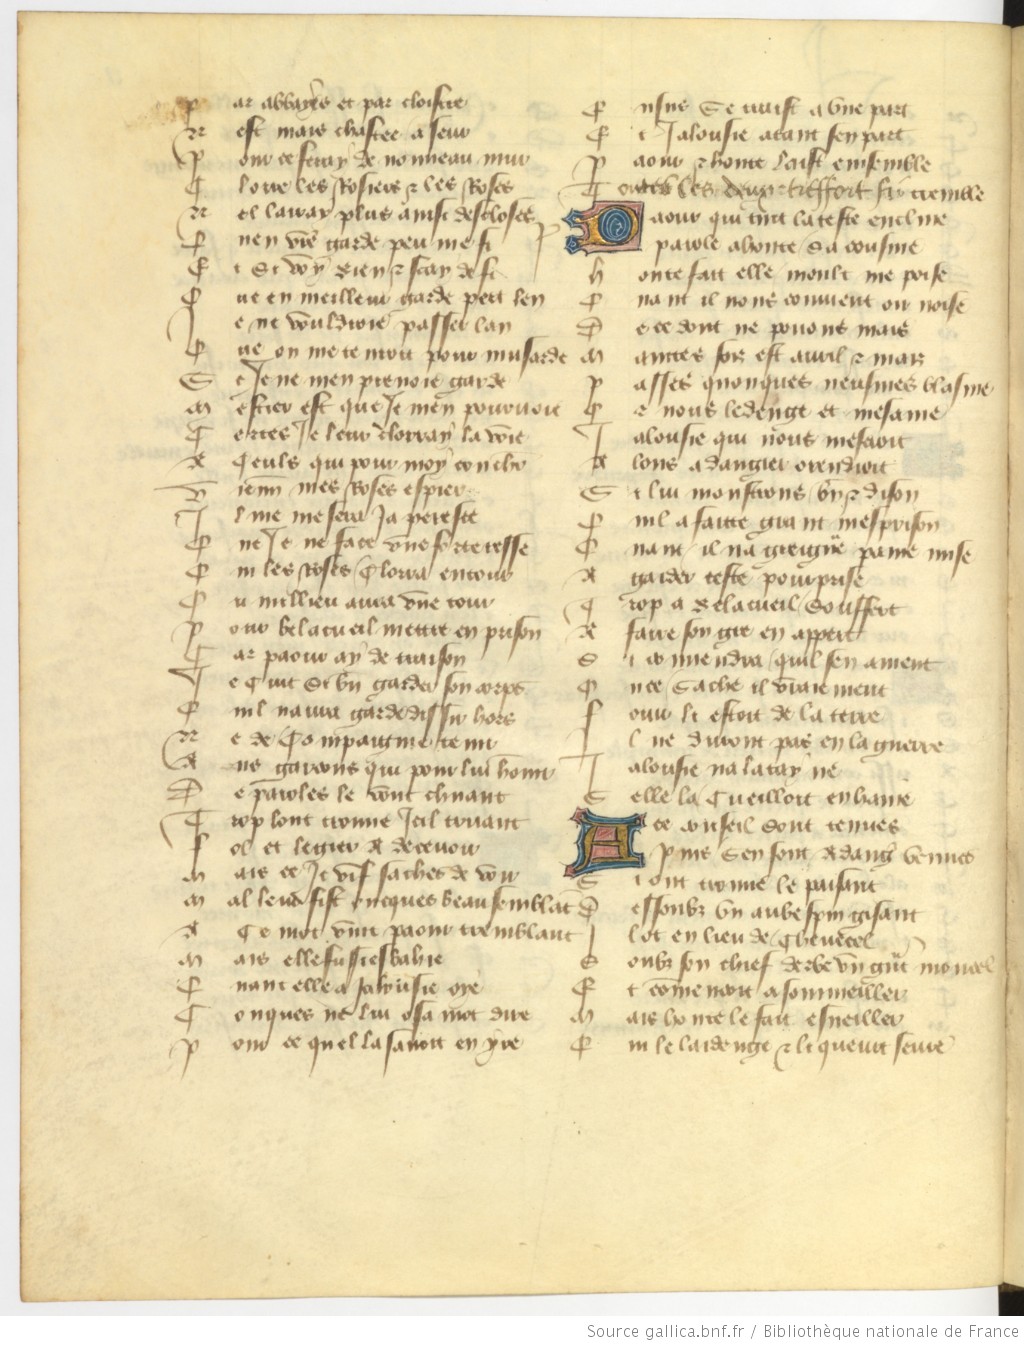 P ar abbayes et par cloistre
N est mais chastee aseur
P our ce feray de nouueau mur
C lorre les Rosiers ⁊ les Roses
N el lairay plus ainsi descloses
E nen vre garde peu me fi
C ar
Q ue en meilleur garde pert len
J e ne vouldroie passer lan
Q ue on me tenroit pour musarde
S e Je ne men prenoie garde
M estier est que Je men pouruoie
C ertes Je leur clorray la voie
A Ceulx qui pour moy conchier
V iennent mes Roses espier
J l ne me sera Ja peresse
Q ue Je ne face vne forteresse
Q ui les Roses Clorra entour
O u millieu aura vne tour
P our belacueil mettre en prison
C ar paour ay de traison
J e Cuit Si bn garder son corps
Q uil naura garde dissir hors
N e de Compaignie tenir
A us garcons qui pour lui honnir
D e paroles le vont chuant
T rop lont trouue Icil truant
F ol et legier A deceuoir
M ais se Je vif saches de voir
M al leur fist oncques beau semblāt
A Ce mot vint paour tremblant
M ais elle fu si esbahie
Q uant elle a Jalousie oye
C onques ne lui osa mot dire
P our ce quel la sauoit en yre
E nsus Se traist a vne part
E t Jalousie atant sen part
P aour ⁊ honte laist ensemble
T outes les
P aour qui tint la teste encline
parole a honte Sa cousine
H onte fait elle moult me poise
Q uant il nous conuient oir noise
D e ce dont ne pouons mais
M aintes fois est auril ⁊ mars
P asses quonques neusmes blasme
Q ⁊ nous ledenge et mesame
J alousie qui nous mescroit
A lons a dangier orendroit
S i lui monstrons bn ⁊ dison
Q uil a faitte grant mesprison
Q uant il na greigne paine mise
A garder ceste pourprise
T rop a Belacueil Souffert
A faire son gre en appert
S i conuiendra quil sen ament
O u ce Sache il vraiement
F ouir li estoit de la terre
J l ne duroit pas en la guerre
J alousie na latayne
S elle la Cueilloit en haine
A ce conseil Sont tenues
Puis Sen sont A dang̃ venues
S i ont trouue le paisant
D essoubz vn aubespin gisant
J l ot en lieu de Cheuecel
S oubz son chief derbe vn grāt moncel
E t comencoit a sommeiller
M ais honte le fait esueiller
Q ui le laidenge ⁊ li queurt seure